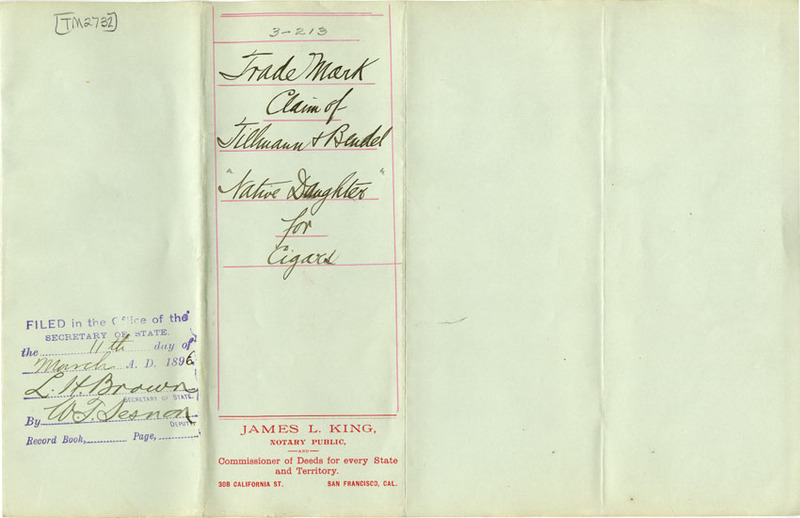 [TM2732]
FILED in the Office of the
SECRETARY OF STATE.
the 11th day of
March A. D. 1896
L. H. Brown
SECRETARY OF STATE.
By W. T. Sesnon
DEPUTY
Record Book, Page,
3-213
Trade Mark
Claim of
Tillmann & Bendel
"Native Daughter"
for
Cigars
JAMES L. KING,
NOTARY PUBLIC,
AND
Commissioner of Deeds for every State
and Territory.
308 CALIFORNIA ST. SAN FRANCISCO, CAL.